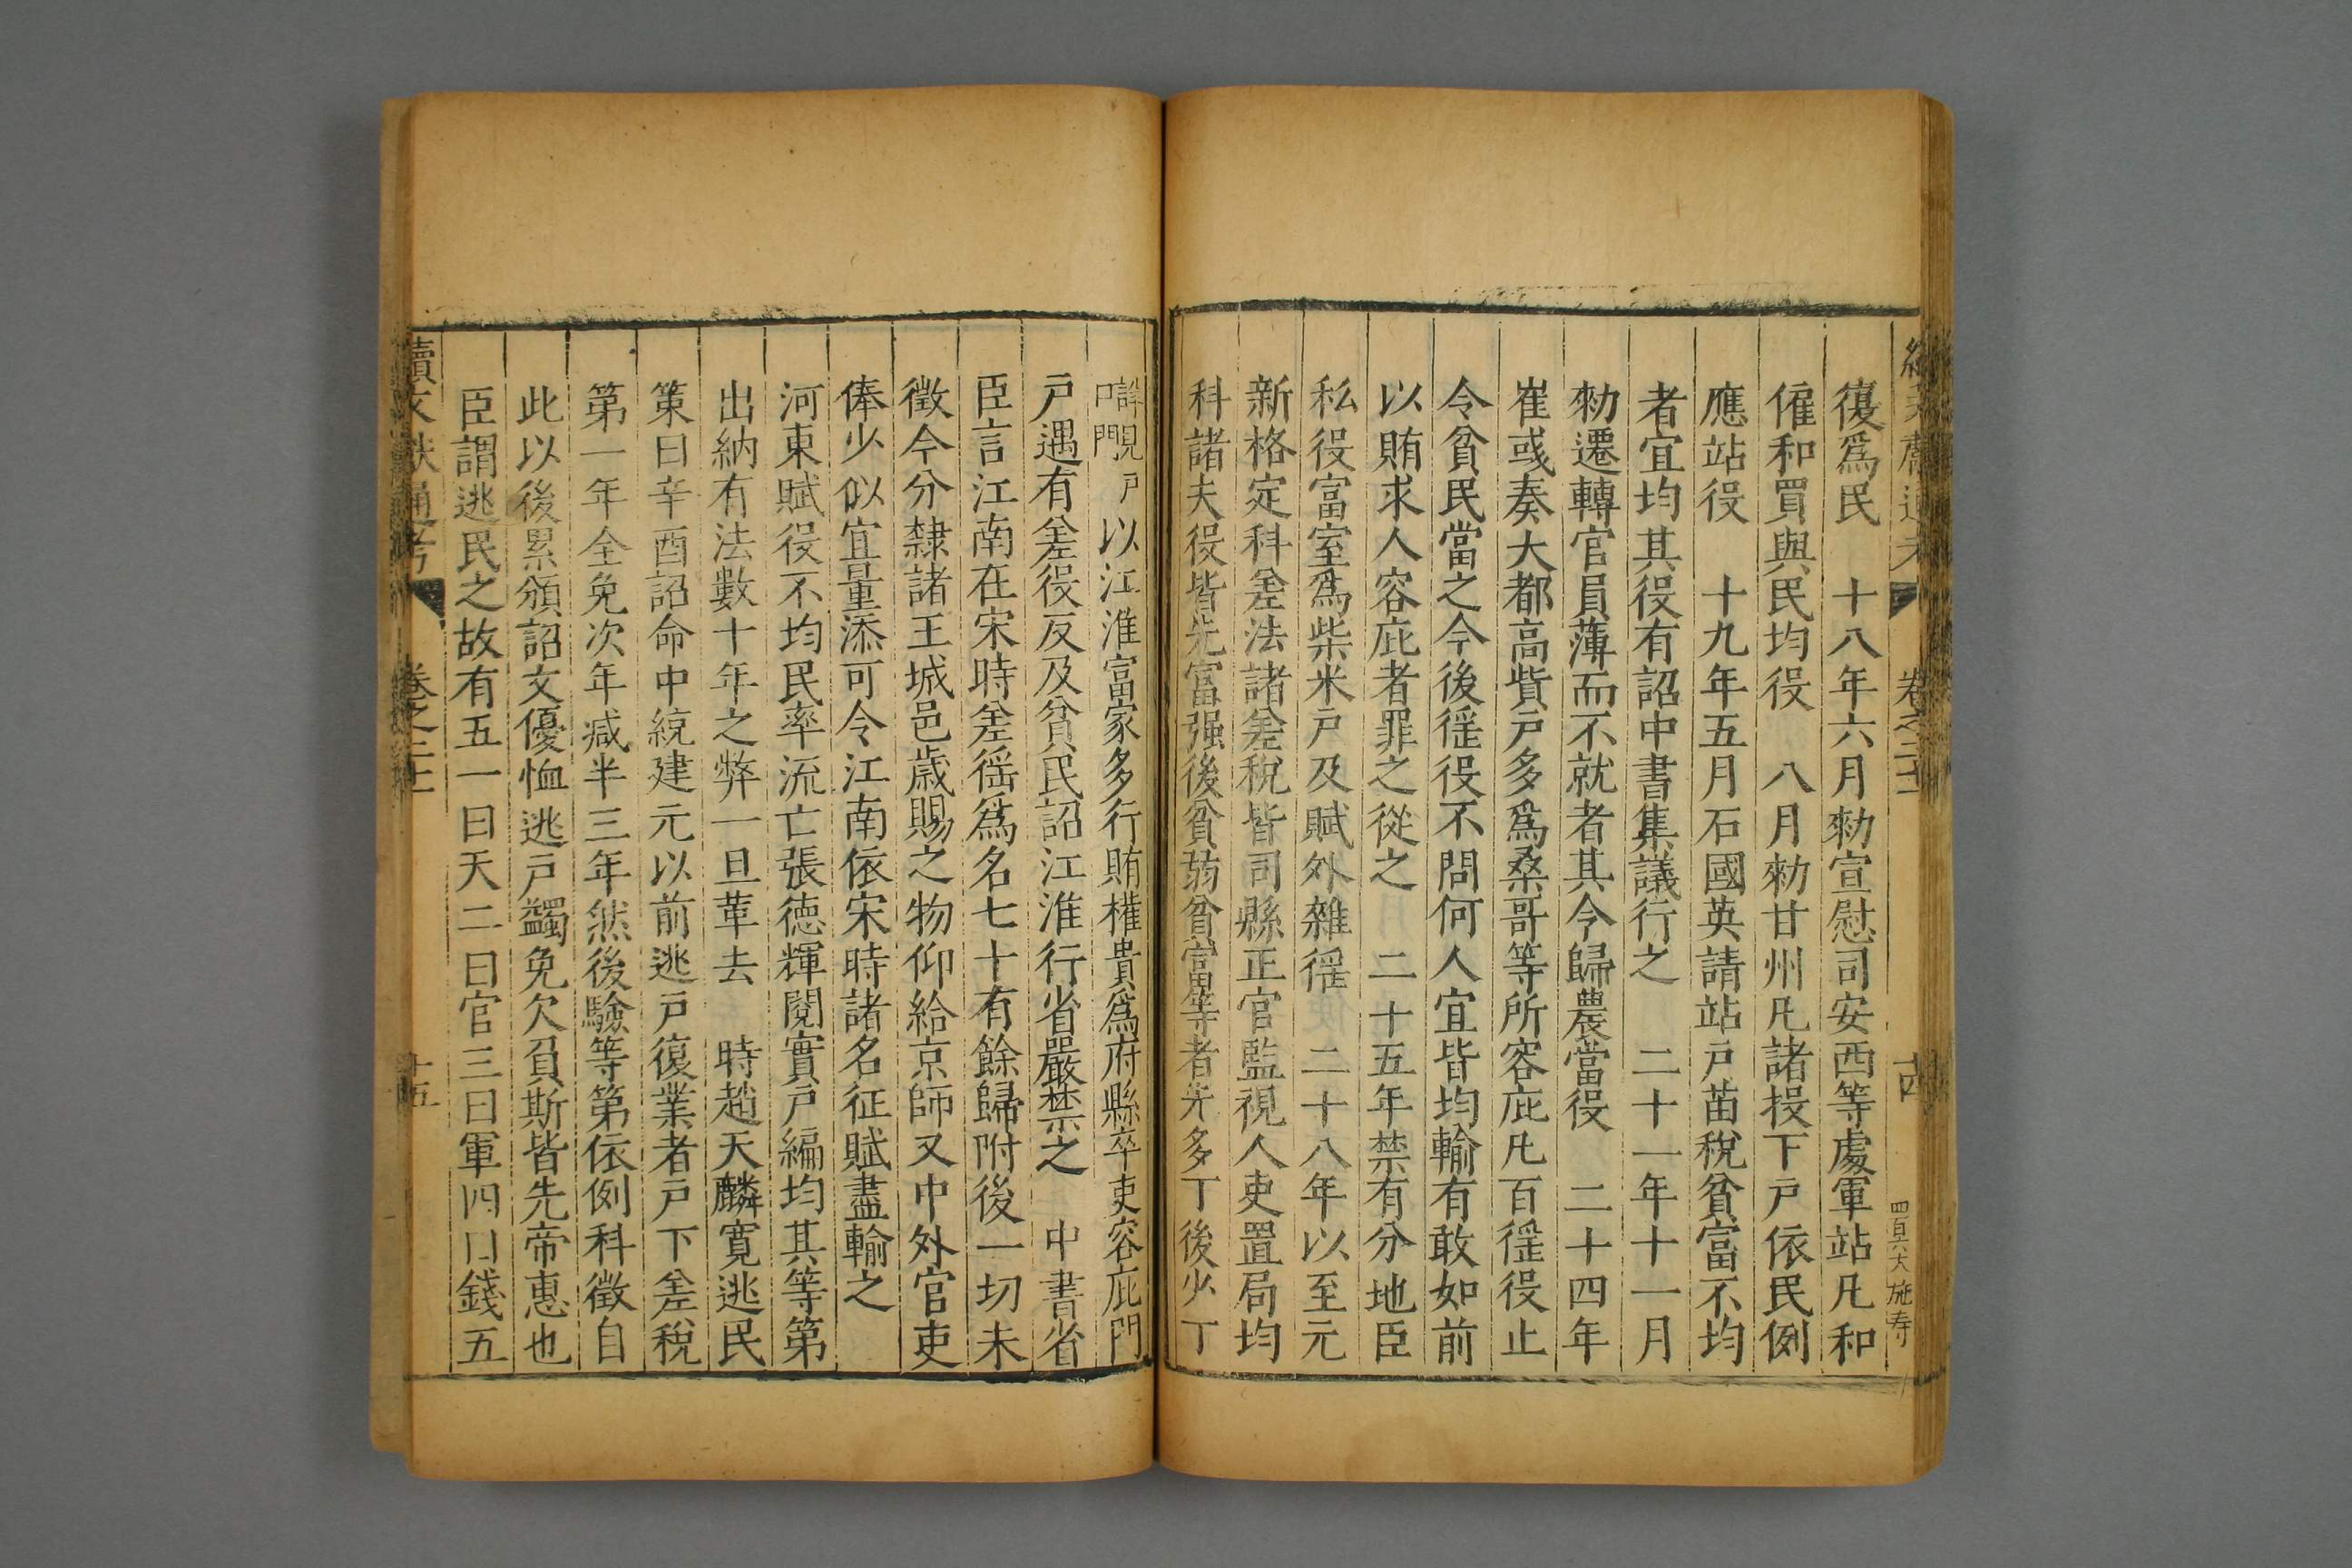 復爲民　十八年六月勑宣慰司安西等處軍站凡和
僱和買與民均役　八月勑甘州凡諸投下戸依民例
應站役　十九年五月石國英請站戸苗稅貧富不均
者宜均其役有詔中書集議行之　二十一年十一月
勑遷轉官員薄而不就者其令歸農當役　二十四年
崔彧奏大都高貲戸多爲桑哥等所容庇凡百徭役止
令貧民當之今後徭役不問何人宜皆均輸有敢如前
以賄求人容庇者罪之從之　二十五年禁有分地臣
私役富室爲柴米戸及賦外雜徭　二十八年以至元
新格定科差法諸差稅皆司縣正官監視人吏置局均
科諸夫役皆先富强後貧弱貧富等者先多丁後少丁
以江淮富家多行賄權貴爲府縣卒吏容庇門
戸遇有差役反及貧民詔江淮行省嚴禁之　中書省
臣言江南在宋時差徭爲名七十有餘歸附後一切未
徵今分隸諸王城邑歲賜之物仰給京師又中外官吏
俸少似宜量添可令江南依宋時諸名征賦盡輸之
河東賦役不均民率流亡張德輝閱實戸編均其等第
出納有法數十年之弊一旦革去　時趙天麟寬逃民
策曰辛酉詔命中統建元以前逃戸復業者戸下差稅
第一年全免次年减半三年然後驗等第依例科徵自
此以後累頒詔文優恤逃戸蠲免欠負斯皆先帝惠也
臣謂逃民之故有五一曰天二曰官三曰軍四曰錢五
續文献通考　卷之二十　十五